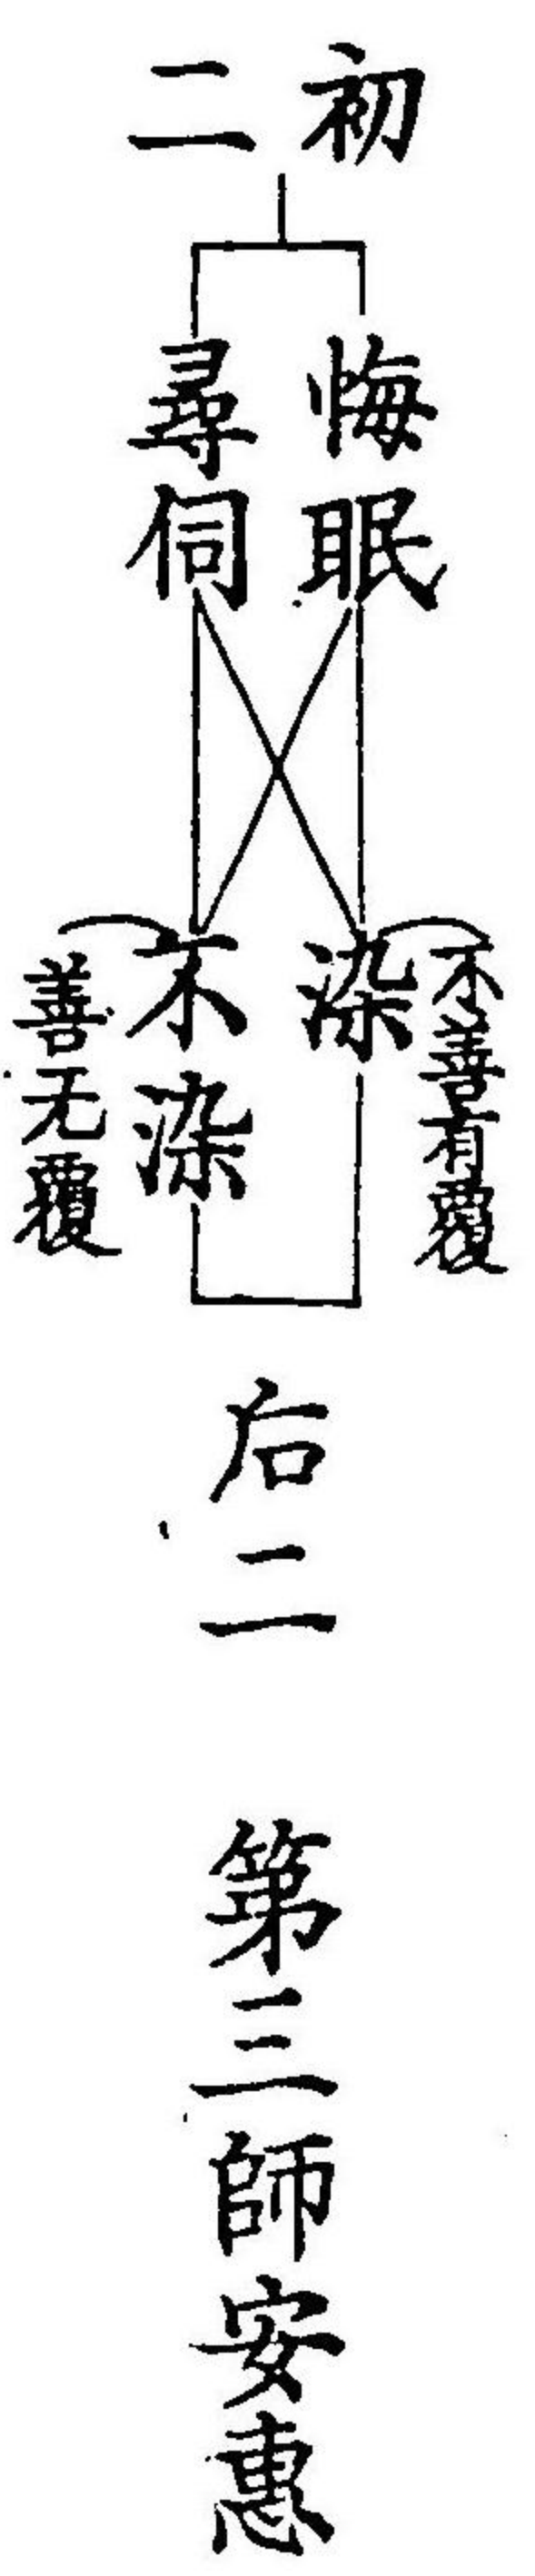 初二
悔眠
尋伺
不善有覆
染
不染
善无覆
后二
第三師安惠